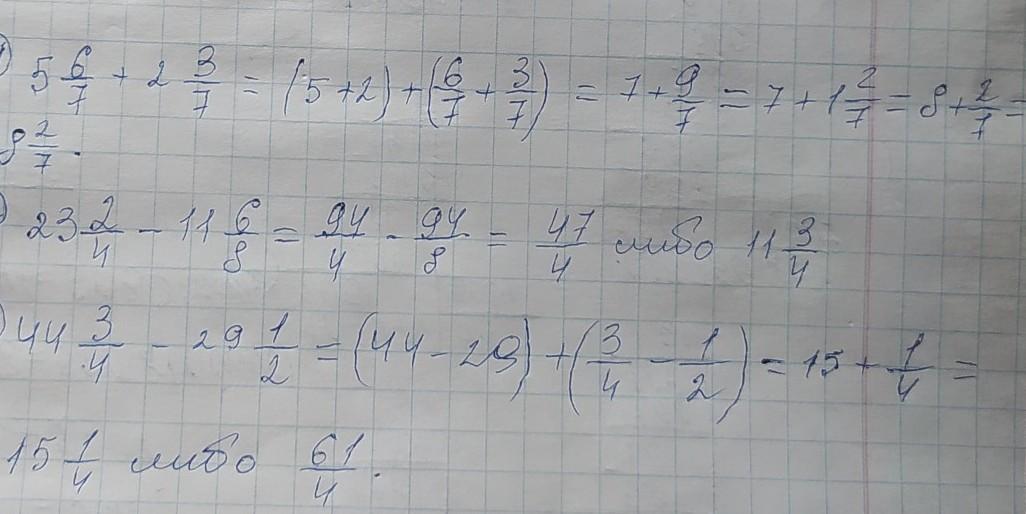 ) 5 6/7 + 2 3/7 = (5+2) + (6/7 + 3/7) = 7 + 9/7 = 7 + 1 2/7 = 8 + 2/7 =
8 2/7.
) 23 2/4 - 11 6/8 = 94/4 - 94/8 = 47/4 либо 11 3/4
) 44 3/4 - 29 1/2 = (44 - 29) + (3/4 - 1/2) = 15 + 1/4 =
15 1/4 либо 61/4.